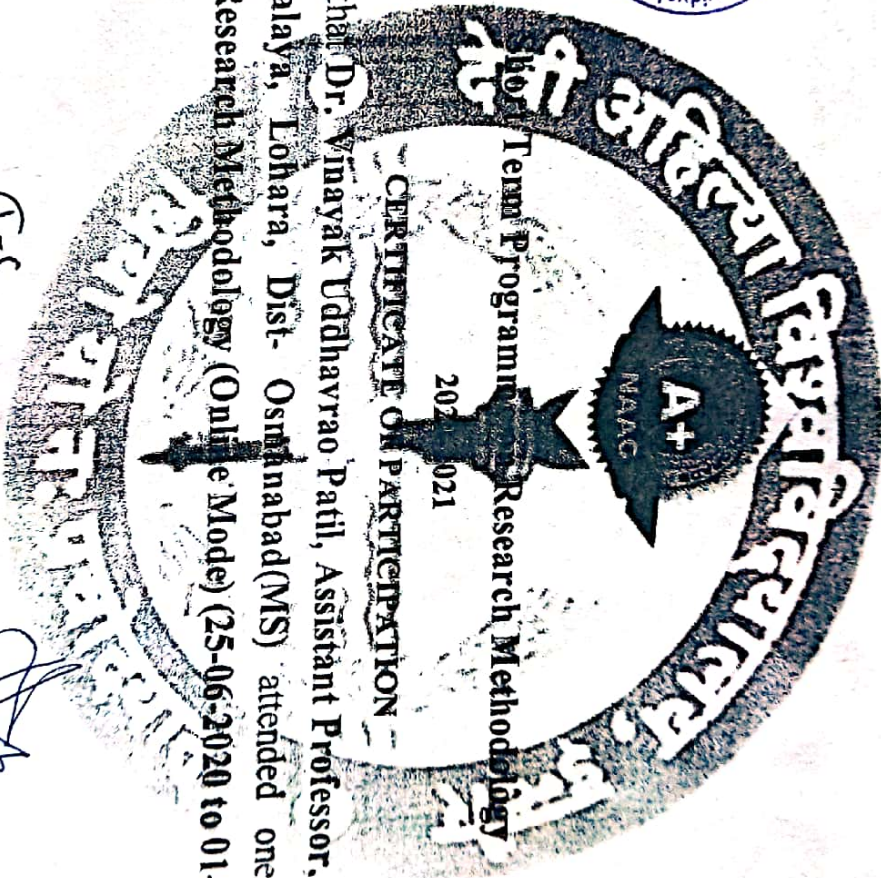 देवी अहिल्या विश्वविद्यालय,
A+
NAAC
Short Term Programme Research Methodology
2021
CERTIFICATE OF PARTICIPATION
that Dr. Vinayak Uddhavrao Patil, Assistant Professor,
alaya, Lohara, Dist- Osmanabad(MS) attended one
Research Methodology (Online Mode) (25-06-2020 to 01-